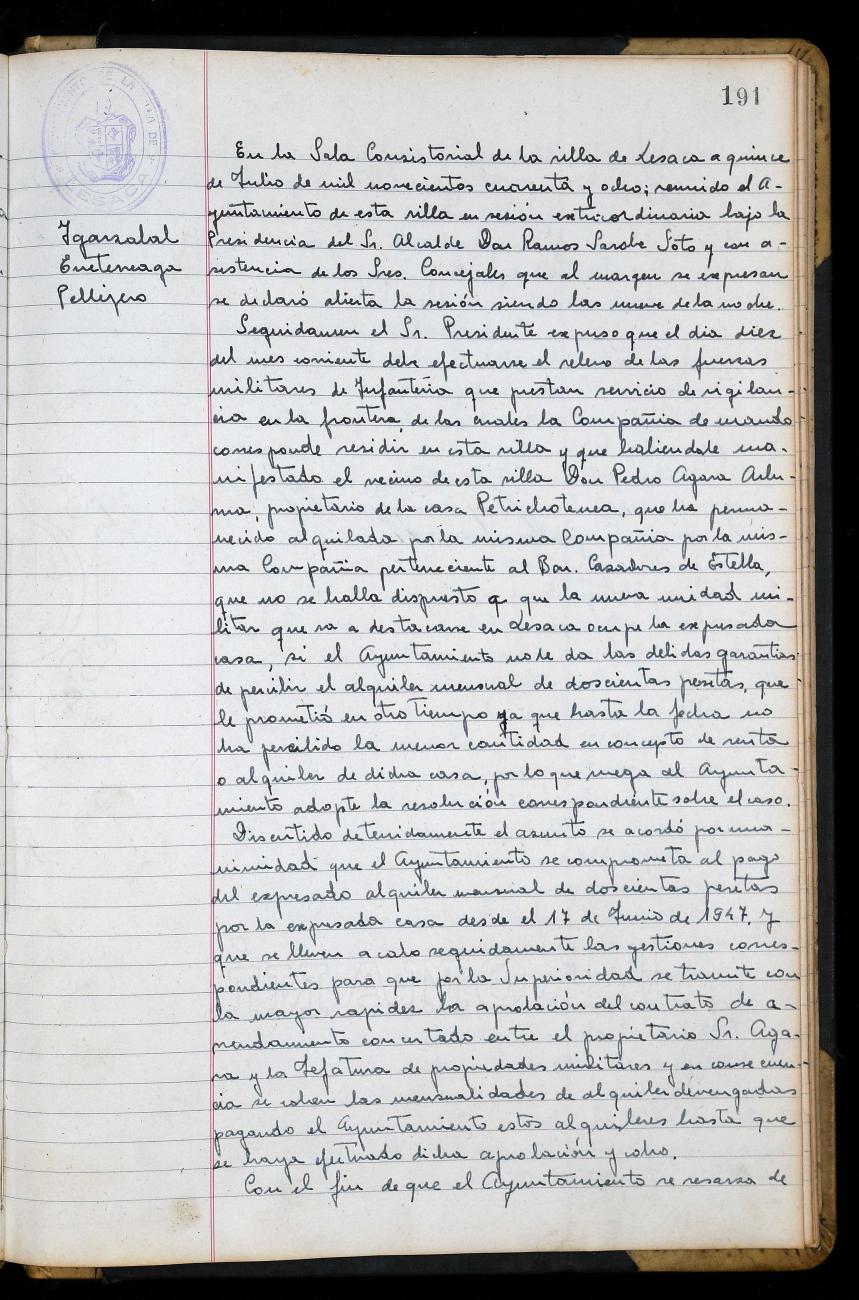 191
AYUNTAMIENTO DE LA VILLA DE
LESACA
Igarzabal
Eneteneaga
Pellijero
En la Sala Consistorial de la villa de Lesaca a quince
de Julio de mil novecientos cuarenta y ocho; reunido el A-
yuntamiento de esta villa en sesión extraordinaria bajo la
Presidencia del Sr. Alcalde Don Ramos Sarobe Soto y con a-
sistencia de los Sres. Concejales que al margen se expresan
se declaró abierta la sesión siendo las nueve de la noche.
Seguidamen el Sr. Presidente expuso que el dia diez
del mes corriente debe efectuarse el relevo de las fuerzas
militares de Infanteria que prestan servicio de vigilan-
cia en la frontera, de las cuales la Compañia de mando
corresponde residir en esta villa y que habiendole ma-
nifestado el vecino de esta villa Don Pedro Agara
ma, propietario de la casa Petrichotenea, que ha perma-
necido alquilada por la misma Compañia por la mis-
ma Compañia perteneciente al Bon. Cazadores de Estella,
que no se halla dispuesto a que la nueva unidad mi-
litar que va a destacarse en Lesaca ocupe la expresada
casa, si el Ayuntamiento no le da las debidas garantias
de percibir el alquiler mensual de doscientas pesetas, que
le prometió en otro tiempo ya que hasta la fecha no
ha percibido la menor cantidad en concepto de renta
o alquiler de dicha casa, por lo que ruega al Ayunta-
miento adopte la resolución correspondiente sobre el caso.
Discutido detenidamente el asunto se acordó por una-
nimidad que el Ayuntamiento se comprometa al pago
del expresado alquiler mensual de doscientas pesetas
por la expresada casa desde el 17 de Junio de 1947, y
que se lleven a cabo seguidamente las gestiones corres-
pondientes para que por la Superioridad se tramite con
la mayor rapidez la aprobación del contrato de a-
rrendamiento concertado entre el propietario Sr. Aga-
ra y la Jefatura de propiedades militares y en consecuen-
cia se cobren las mensualidades de alquiler devengadas
pagando el Ayuntamiento estos alquileres hasta que
se haya efectuado dicha aprobación y cobro.
Con el fin de que el Ayuntamiento se resarza de